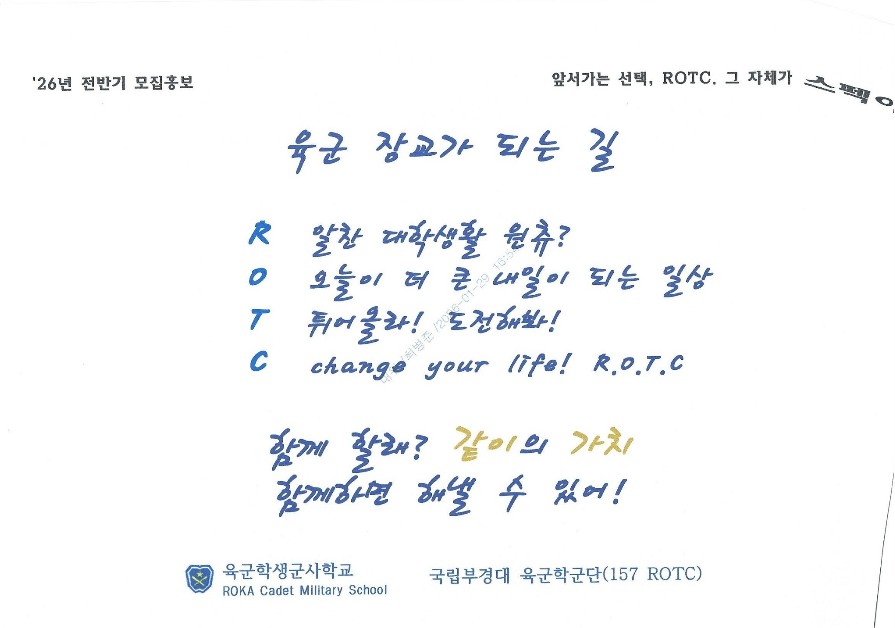 '26년 전반기 모집홍보
앞서가는 선택, ROTC. 그 자체가 스펙
육군 장교가 되는 길
R 알찬 대학생활 원츄?
O 오늘이 더 큰 내일이 되는 일상
T 튀어올라! 도전해봐!
C change your life! R.O.T.C
함께 할래? 같이의 가치
함께하면 해낼 수 있어!
육군학생군사학교
ROKA Cadet Military School
국립부경대 육군학군단(157 ROTC)